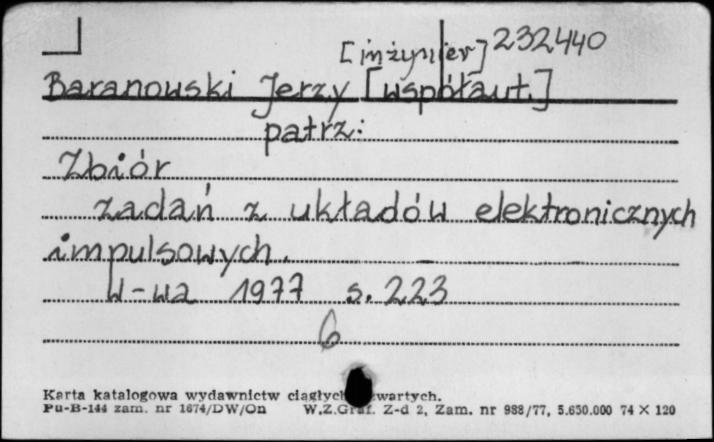 [inżynier] 232440
Baranowski Jerzy [współaut.]
patrz:
Zbiór
zadań z układów elektronicznych
impulsowych.
W-wa 1977 s. 223
6
Karta katalogowa wydawnictw ciągłych zwartych.
Pu-B-144 zam. nr 1674/DW/On W.Z.Graf. Z-d 2, Zam. nr 988/77, 5.650.000 74 × 120